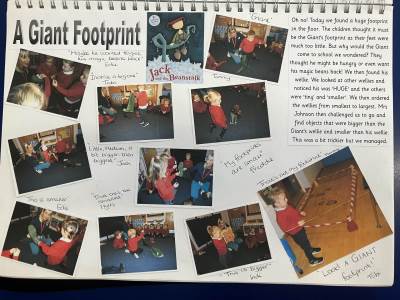 A Giant Footprint
Jack
and the Beanstalk
"Maybe he wanted
his magic beans back"
Little, Medium, a
bit bigger then
biggest"
Josh
"My footprints
are smaller"
Freddie
"This is smaller"
"This is bigger"
"Look! A GIANT
footprint!"
Oh no! Today we found a huge footprint
in the floor. The children thought it must
be the Giant's footprint as their feet were
much too little. But why would the Giant
come to school we wondered? They
thought he might be hungry or even want
his magic beans back! We then found his
wellie. We looked at other wellies and
noticed his was 'HUGE' and the others
were 'tiny' and 'smaller'. We then ordered
the wellies from smallest to largest. Mrs
Johnson then challenged us to go and
find objects that were bigger than the
Giant's wellie and smaller than his wellie.
This was a bit trickier but we managed.